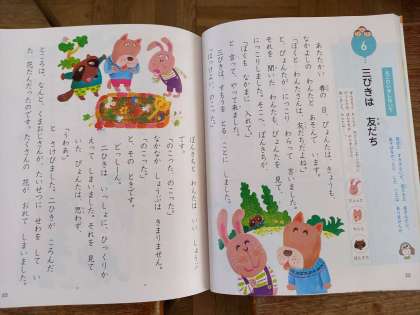 6
三びきは 友だち
あたたかい 春の 日、ぴょんたは、きょうも
なかよしの わんたと あそんで います。
「ぼくと わんたさんは 友だちだよね。」
と、ぴょんたが にっこり わらって 言いました。
それを 聞いた わんたも、ぴょんたを 見て、
にっこりしました。そこへ、ぽんきちが、
「ぼくを なかまに 入れて。」
と 言って、やって来ました。
三びきは、すもうを とる ことに しました。
「はっけよい、のこった。」
ぴょんた
わんた
ぽんきち
ぽんきちと わんたは いい しょうぶ
です。
「のこった、のこった。」
なかなか しょうぶは きまりません。
と、その ときです。
どっしーん。
二ひきは いっしょに、ひっくりか
えって しまいました。それを 見て
いた ぴょんたは、思わず、
「うわあ。」
と さけびました。二ひきが ころんだ
ところは、なんと、くまおじさんが、たいせつに せわを して い
た 花だんだったのです。たくさんの 花が、おれて しまいました。